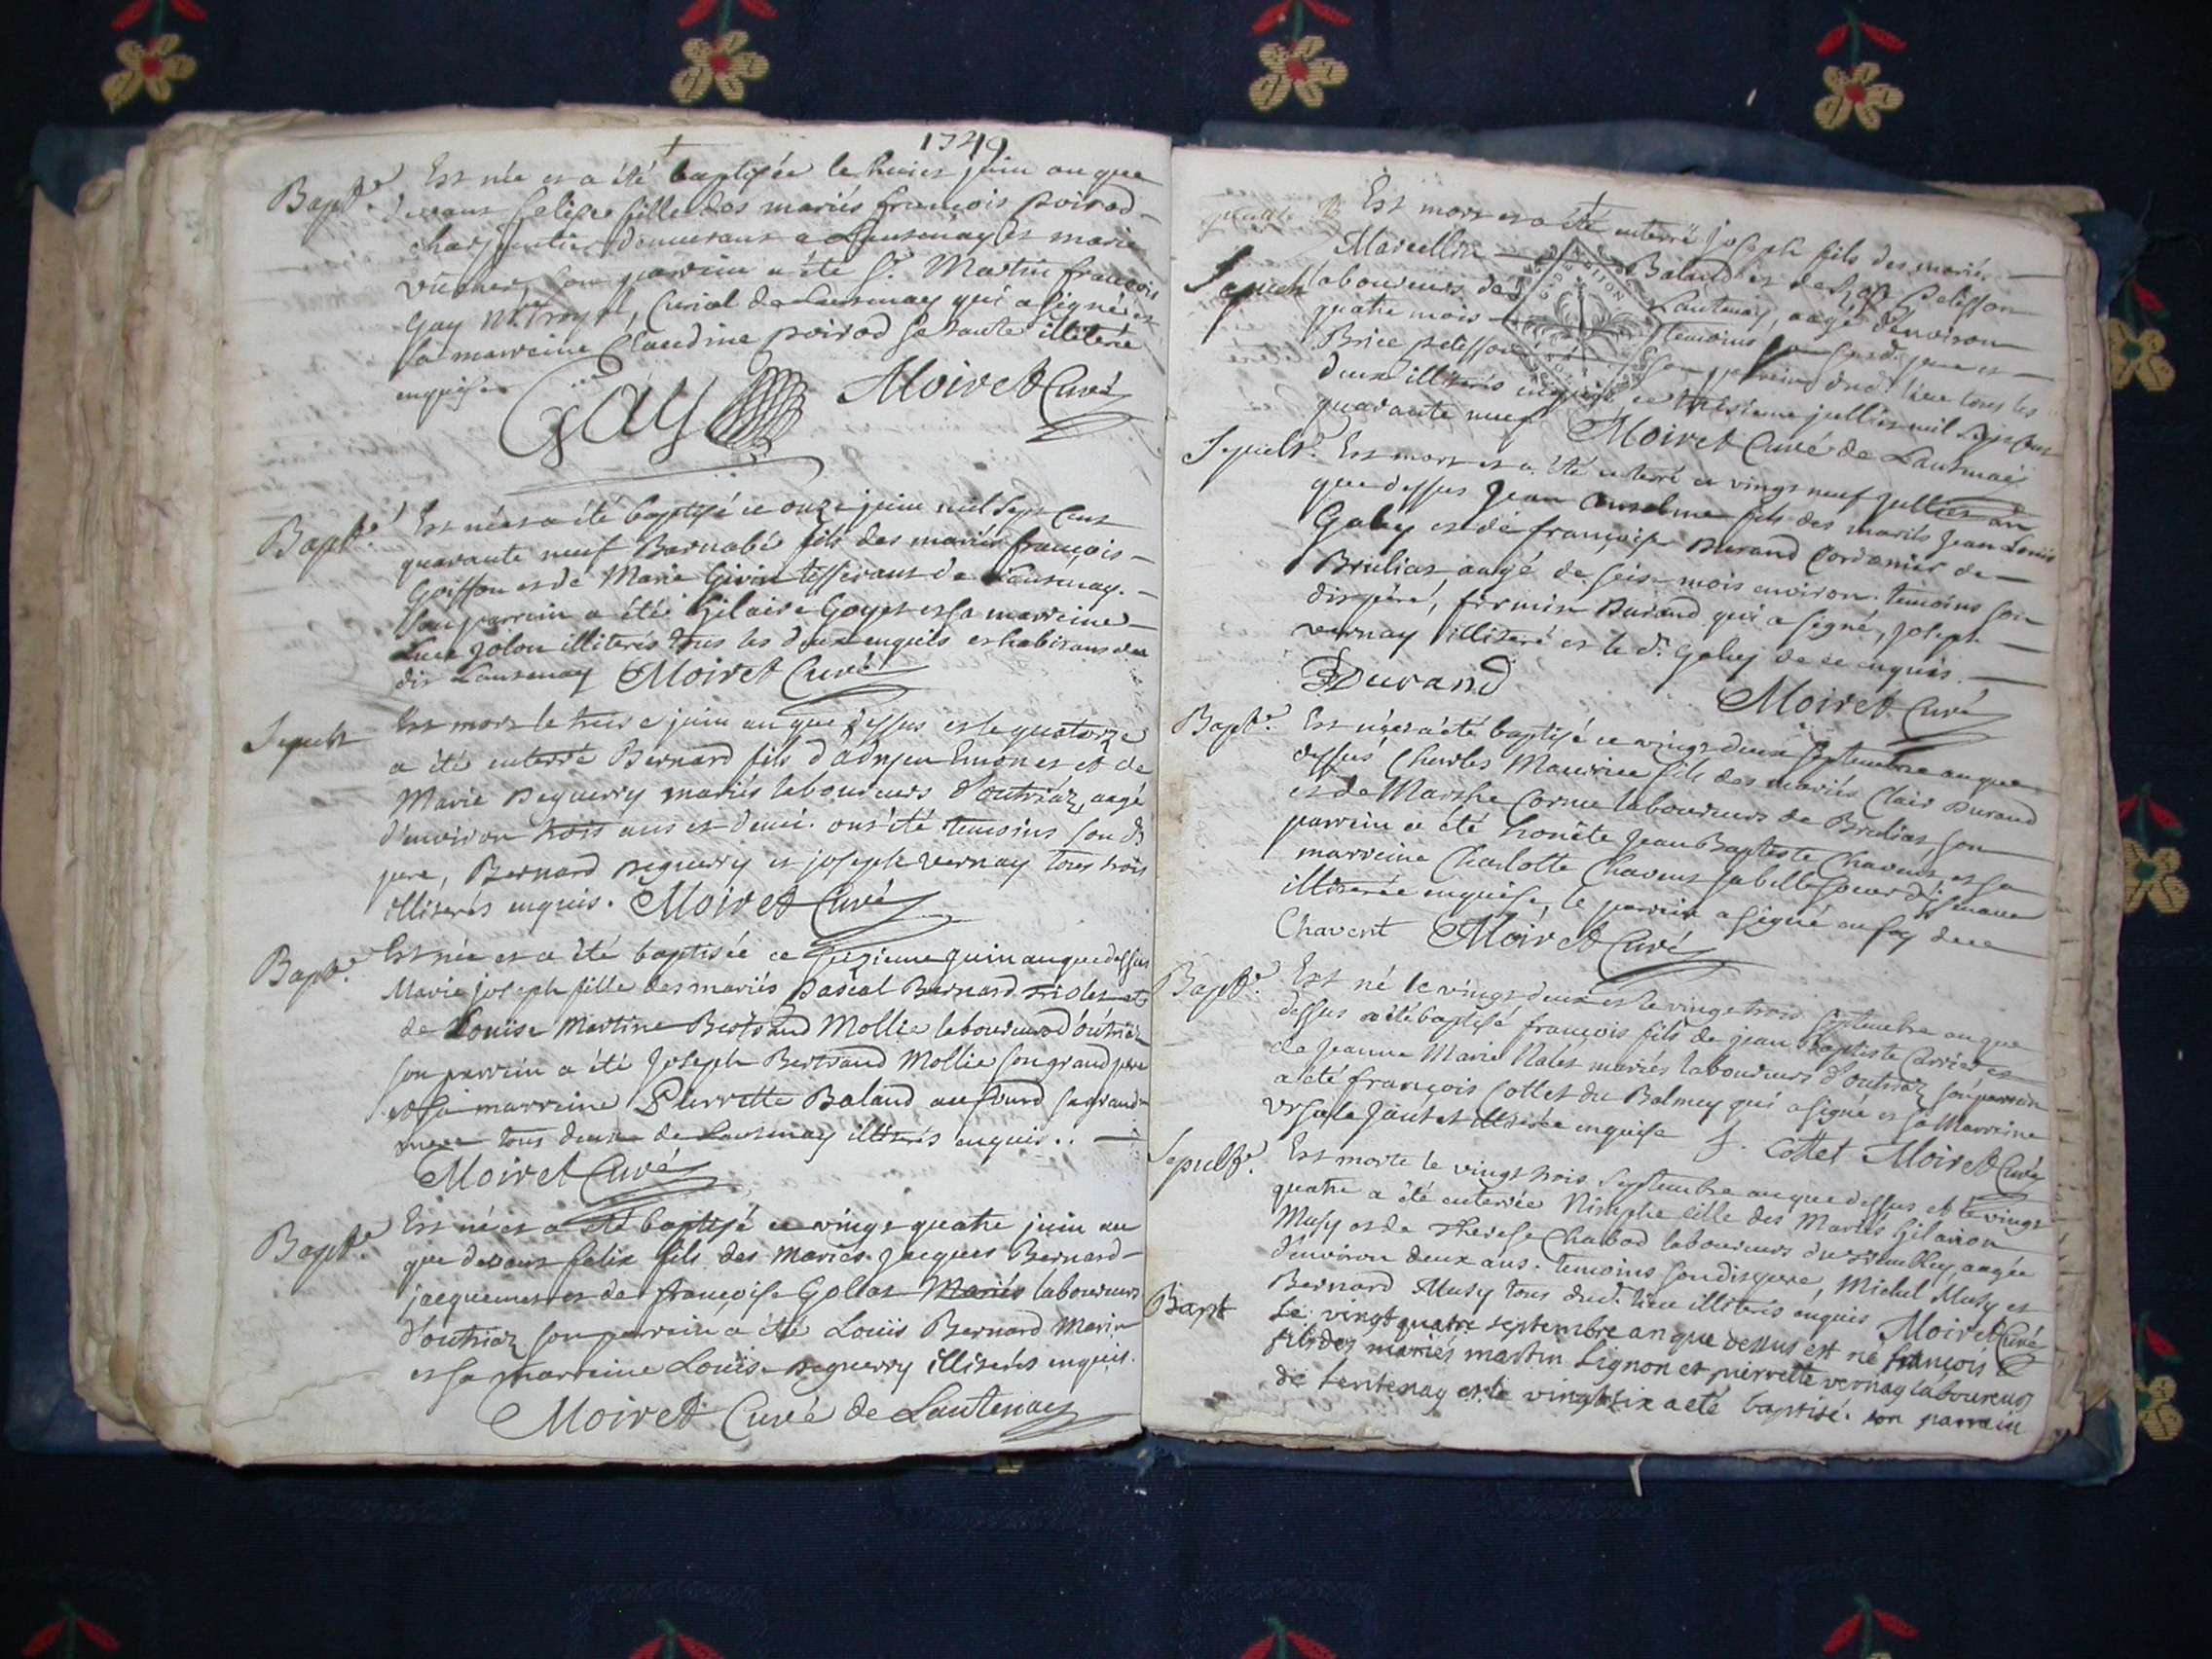 1749
Bapt.e Est née et a été baptisée le huict juin an que
devant felise fille des mariés françois poirod
charpentier demeurant a Lantenay et marie
son parrein a été Sr. Martin françois
Gay , Curial de Lantenay qui a signé et
sa marreine Claudine poirod sa tante illiterée
enquise.
Gay Moiret Curé
Bapt.e Est né et a été baptisé ce onze juin mil sept cent
quarante neuf Barnabé fils des mariés françois
Goiffon et de Marie Girin tisserant de Lantenay.
Son parrein a été hilaire Goyet et sa marreine
Luce Jolon illiterés tous les deux enquis et habitans du
dit Lantenay Moiret Curé
Sepult Est mort le treize juin an que dessus et le quatorze
a été enterré Bernard fils d'adrjen Emonet et de
Marie Reguerry mariés laboureurs d'outriaz, aagé
d'environ trois ans et demi. ont été temoins son d.
pere, Bernard reguerry et joseph vernay tous trois
illiterés enquis. Moiret Curé
Bapt.e Est née et a été baptisée ce seizieme juin an que dessus
Marie joseph fille des mariés pascal Bernard et
de Louise Martine Bertrand Mollie laboureurs d'outriaz
son parrein a été Joseph Bertrand Mollie son grand pere
et sa marreine Pierrette Baland sa grand
mere tous deux de Lantenay illiterés enquis.
Moiret Curé
Bapt.e Est né et a été baptisé ce vingt quatre juin an
que devant felix fils des mariés Jacques Bernard
jacquemet et de françoise Gollet Mariés laboureurs
d'outriaz son parrein a été Louis Bernard Marin
et sa marreine Louise reguerry illiterés enquis.
Moiret Curé de Lantenay
Est mort et a été enterré joseph fils des mariés
Marcellin Baland et de pelisson
Sepult laboureurs de Lantenay, aagé d'environ
quatre mois temoins son pere et
Brice pelisson son parrein dud. lieu tous les
deux illiterés enquis ce troisieme jullier mil sept cent
quarante neuf Moiret Curé de Lantenay
Sepult. Est mort et a été enterré ce vingt neuf jullier an
que dessus Jean Anselme fils des mariés Jean Louis
Gabey et de françoise Durand Cordonier de
Brulias, aagé de seise mois environ. temoins son
dit pere, firmin Durand qui a signé, Joseph
vernay illiteré et le d. Gabey de ce enquis.
F Durand Moiret Curé
Bapt.e Est né et a été baptisé ce vingt deux septembre an que
dessus Charles Maurice fils des mariés Clair Durand
et de Marthe Cornu laboureurs de Brulias, son
parrein a été honête Jean Baptiste Chavent et sa
marreine Charlotte Chavent sa belle soeur
illiterée enquise, le parrein a signé
Chavent Moiret Curé
Bapt.e Est né le vingt deux et le vingt trois septembre an que
dessus a été baptisé françois fils de jean Baptiste Carrier et
de Jeanne Marie Nalet mariés laboureurs d'outriaz son parrein
a été françois Cottet du Balmey qui a signé et sa Marreine
Ursule Jantet illiterée enquise f. Cottet Moiret Curé
Sepult.e Est morte le vingt trois Septembre an que dessus et le vingt
quatre a été enterrée Nimphe fille des Mariés hilarion
Musy et de Therese Chabod laboureurs du aagée
d'environ deux ans. temoins son dit pere, Michel Musy et
Bernard Musy tous dud. lieu illiterés enquis Moiret Curé
Bapt Le vingt quatre septembre an que dessus est né françois
fils des mariés martin Lignon et pierrette vernay laboureurs
de Lentenay et le vingt six a eté baptisé. son parrein